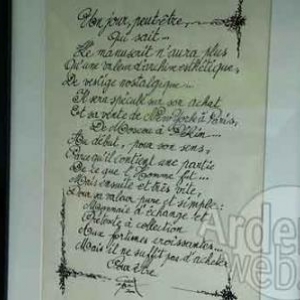 Un jour, peut-être,
Qui sait...
Le manuscrit n'aura plus
Qu'une valeur d'archive esthétique,
De vestige nostalgique...
Il sera spéculé sur son achat
Et sa vente de New York à Paris,
De Moscou à Pékin...
Au début, pour son sens,
Parce qu'il contient une partie
De ce que l'Homme fit...
Mais ensuite et très vite,
Pour sa valeur pure et simple:
Monnaie à échange et
Prétexte à collection
Aux fortunes croissantes...
Mais il ne suffit pas d'acheter
Pour être
Arde
web